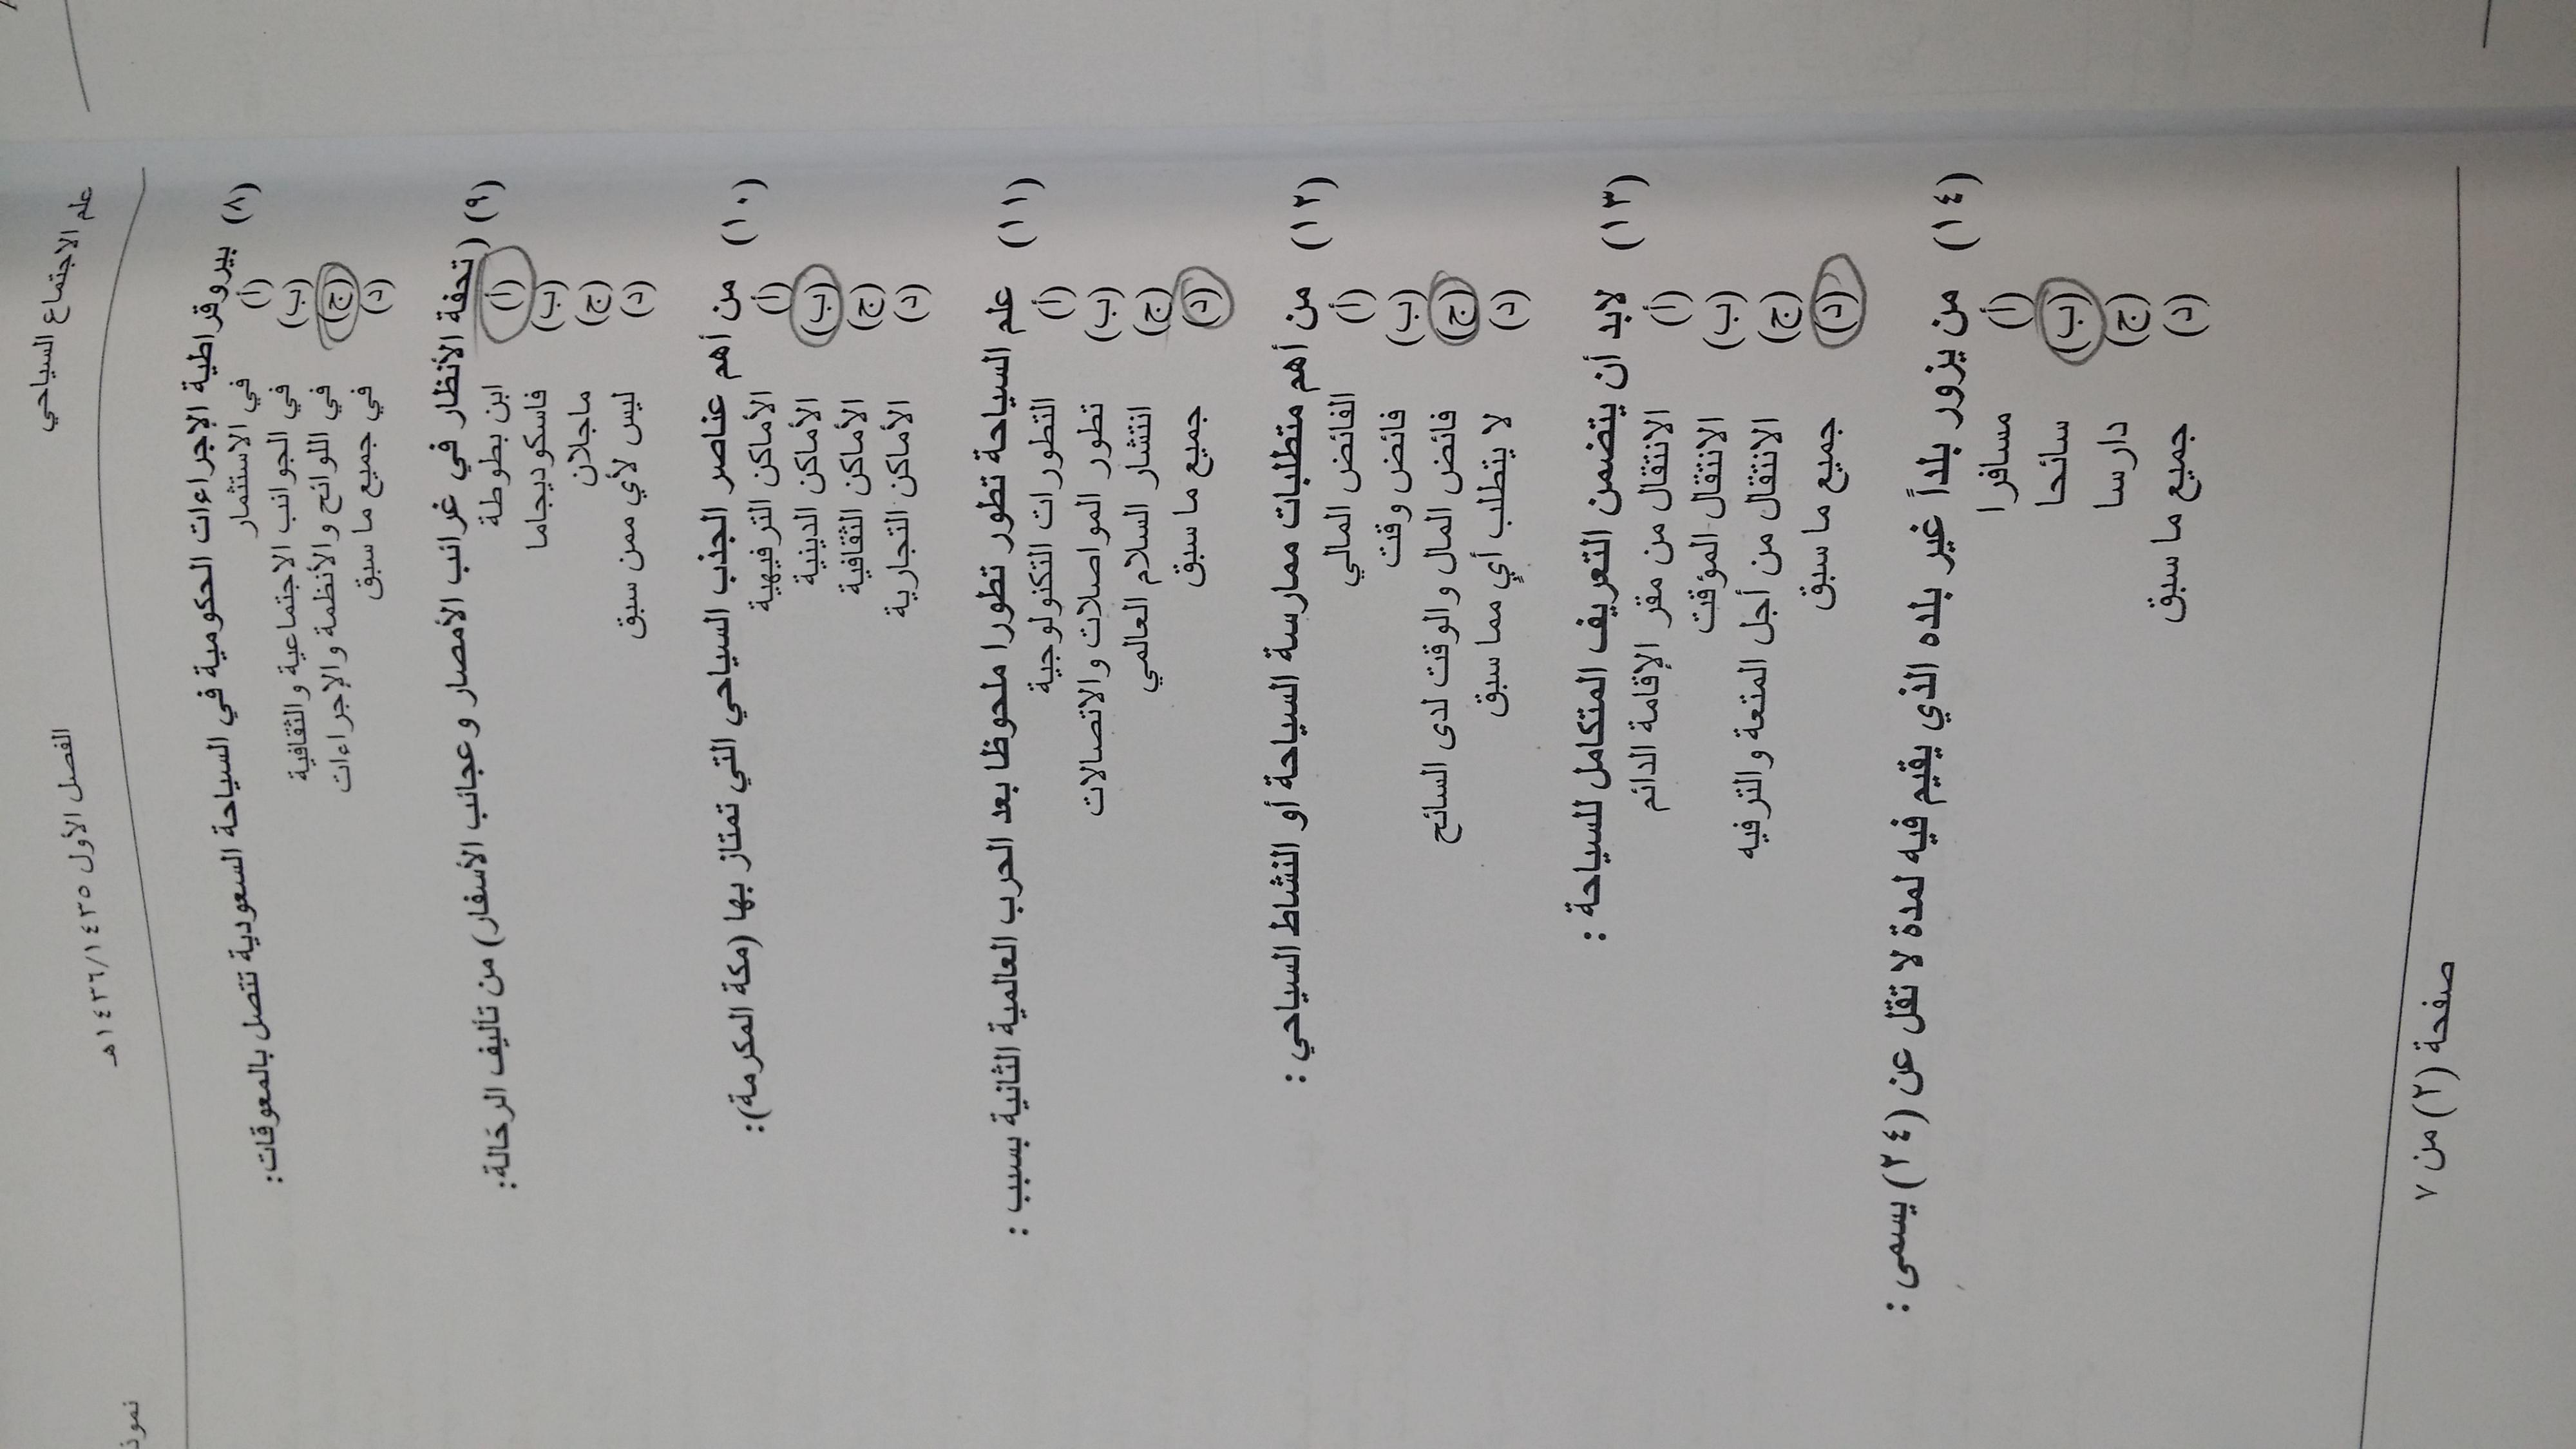 علم الاجتماع السياحي
الفصل الأول ١٤٣٦/١٤٣٥هـ
(٨) بيروقراطية الإجراءات الحكومية في السياحة السعودية تتصل بالمعوقات:
(أ) في الاستثمار
(ب) في الجوانب الاجتماعية والثقافية
(ج) في اللوائح والأنظمة والإجراءات
(د) في جميع ما سبق
(٩) (تحفة الأنظار في غرائب الأمصار وعجائب الأسفار) من تأليف الرحالة:
(أ) ابن بطوطة
(ب) فاسكوديجاما
(ج) ماجلان
(د) ليس لأي ممن سبق
(١٠) من أهم عناصر الجذب السياحي التي تمتاز بها (مكة المكرمة):
(أ) الأماكن الترفيهية
(ب) الأماكن الدينية
(ج) الأماكن الثقافية
(د) الأماكن التجارية
(١١) علم السياحة تطور تطورا ملحوظا بعد الحرب العالمية الثانية بسبب :
(أ) التطورات التكنولوجية
(ب) تطور المواصلات والاتصالات
(ج) انتشار السلام العالمي
(د) جميع ما سبق
(١٢) من أهم متطلبات ممارسة السياحة أو النشاط السياحي :
(أ) الفائض المالي
(ب) فائض وقت
(ج) فائض المال والوقت لدى السائح
(د) لا يتطلب أي مما سبق
(١٣) لابد أن يتضمن التعريف المتكامل للسياحة :
(أ) الانتقال من مقر الإقامة الدائم
(ب) الانتقال المؤقت
(ج) الانتقال من أجل المتعة والترفيه
(د) جميع ما سبق
(١٤) من يزور بلداً غير بلده الذي يقيم فيه لمدة لا تقل عن (٢٤) يسمى :
(أ) مسافرا
(ب) سائحا
(ج) دارسا
(د) جميع ما سبق
صفحة (٢) من ٧